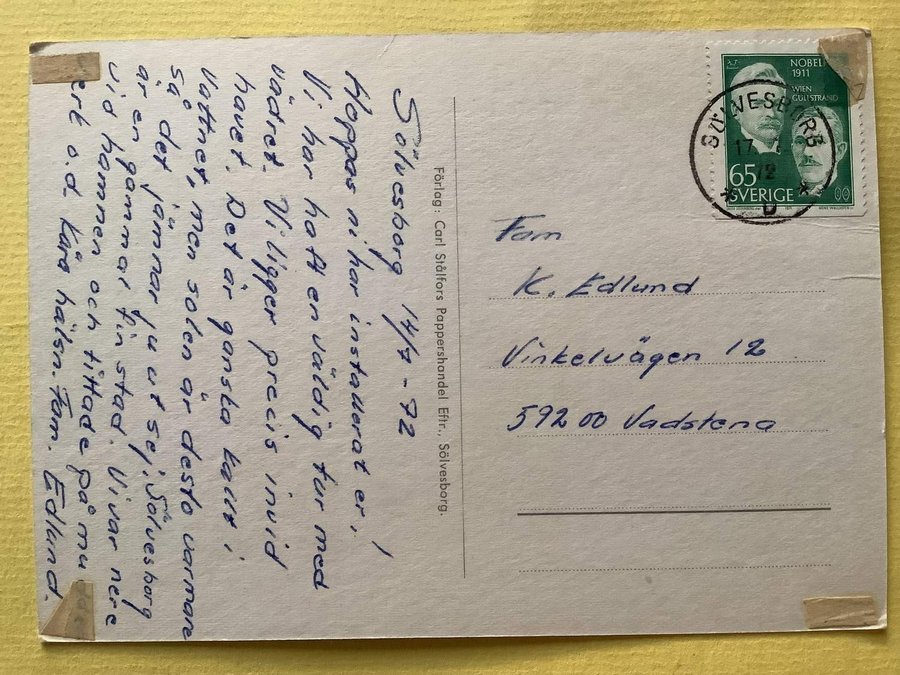 Sölvesborg 14/7-72
Hoppas ni har installerat er!
Vi har haft en väldig tur med
vädret. Vi ligger precis invid
havet. Det är ganska kallt i
Vattnet, men solen är desto varmare
så det jämnar ju ut sej. Sölvesborg
är en gammal fin stad. Vi var nere
vid hamnen och tittade på
o.d. Kära hälsn. Fam. Edlund.
Förlag: Carl Stålfors Pappershandel Eftr., Sölvesborg.
NOBEL
1911
WIEN
GULLSTRAND
65
SVERIGE
SÖLVESBORG
17
72
D
Fam
K. Edlund
Vinkelvägen 12
592 00 Vadstena